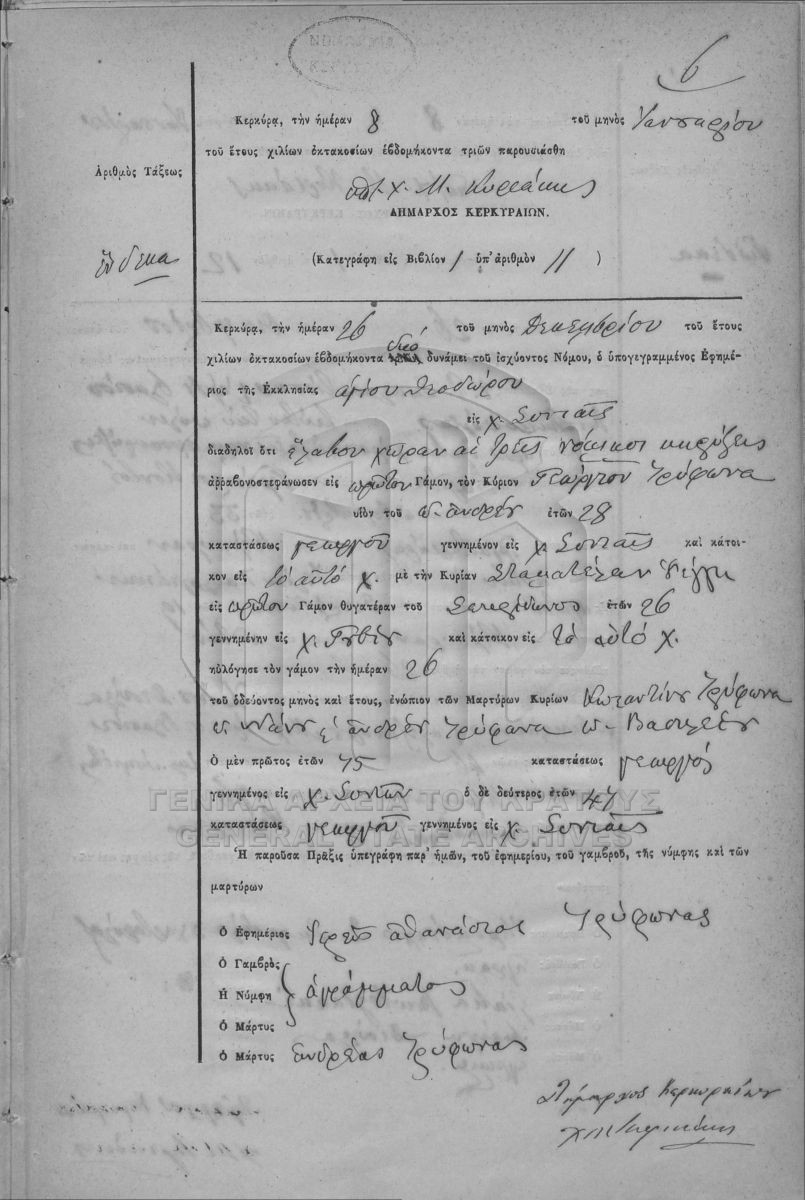 6
Κερκύρᾳ, τὴν ἡμέραν 8 τοῦ μηνὸς Ἰανουαρίου
τοῦ ἔτους χιλίων ὀκτακοσίων ἑβδομήκοντα τριῶν παρουσιάσθη
Ἀριθμὸς Τάξεως
ΔΗΜΑΡΧΟΣ ΚΕΡΚΥΡΑΙΩΝ.
ἕνδεκα
(Κατεγράφη εἰς Βιβλίον 1 ὑπ' ἀριθμὸν 11 )
Κερκύρᾳ, τὴν ἡμέραν 26 τοῦ μηνὸς Δεκεμβρίου τοῦ ἔτους
χιλίων ὀκτακοσίων ἑβδομήκοντα δύο δυνάμει τοῦ ἰσχύοντος Νόμου, ὁ ὑπογεγραμμένος Ἐφημέ-
ριος τῆς Ἐκκλησίας ἁγίου Θεοδώρου
εἰς χ. Σινιαῖς
διαδηλοῖ ὅτι ἔλαβον χώραν αἱ τρεῖς νόμιμοι κηρύξεις
ἀῤῥαβονοστεφάνωσεν εἰς πρῶτον Γάμον, τὸν Κύριον Γεώργιον Τρύφωνα
υἱὸν τοῦ π. ἀνδρέυ ἐτῶν 28
καταστάσεως γεωργοῦ γεννημένον εἰς χ. Σινιαῖς καὶ κάτοι-
κον εἰς τὸ αὐτὸ χ. μὲ τὴν Κυρίαν Σταματέλαν
εἰς πρῶτον Γάμον θυγατέραν τοῦ Σπυρίδωνος ἐτῶν 26
γεννημένην εἰς χ. καὶ κάτοικον εἰς τὸ αὐτὸ χ.
ηὐλόγησε τὸν γάμον τὴν ἡμέραν 26
τοῦ ὁδεύοντος μηνὸς καὶ ἔτους, ἐνώπιον τῶν Μαρτύρων Κυρίων Κωσταντῖνον Τρύφωνα
ἀνδρέυ Τρύφωνα π. Βασιλείυ
Ὁ μὲν πρῶτος ἐτῶν 45 καταστάσεως γεωργός
γεννημένος εἰς χ. ὁ δὲ δεύτερος ἐτῶν 47
ΓΕΝΙΚΑ ΑΡΧΕΙΑ ΤΟΥ ΚΡΑΤΟΥΣ
καταστάσεως γεωργοῦ γεννημένος εἰς χ. Σινιαῖς
GENERAL STATE ARCHIVES
Ἡ παροῦσα Πρᾶξις ὑπεγράφη παρ' ἡμῶν, τοῦ ἐφημερίου, τοῦ γαμβροῦ, τῆς νύμφης καὶ τῶν
μαρτύρων
Ὁ Ἐφημέριος Ἱερεὺς ἀθανάσιος Τρύφωνας
Ὁ Γαμβρὸς
Ἡ Νύμφη ἀγράμματος
Ὁ Μάρτυς
Ὁ Μάρτυς ἀνδρέας Τρύφωνας
Δήμαρχος Κερκυραίων